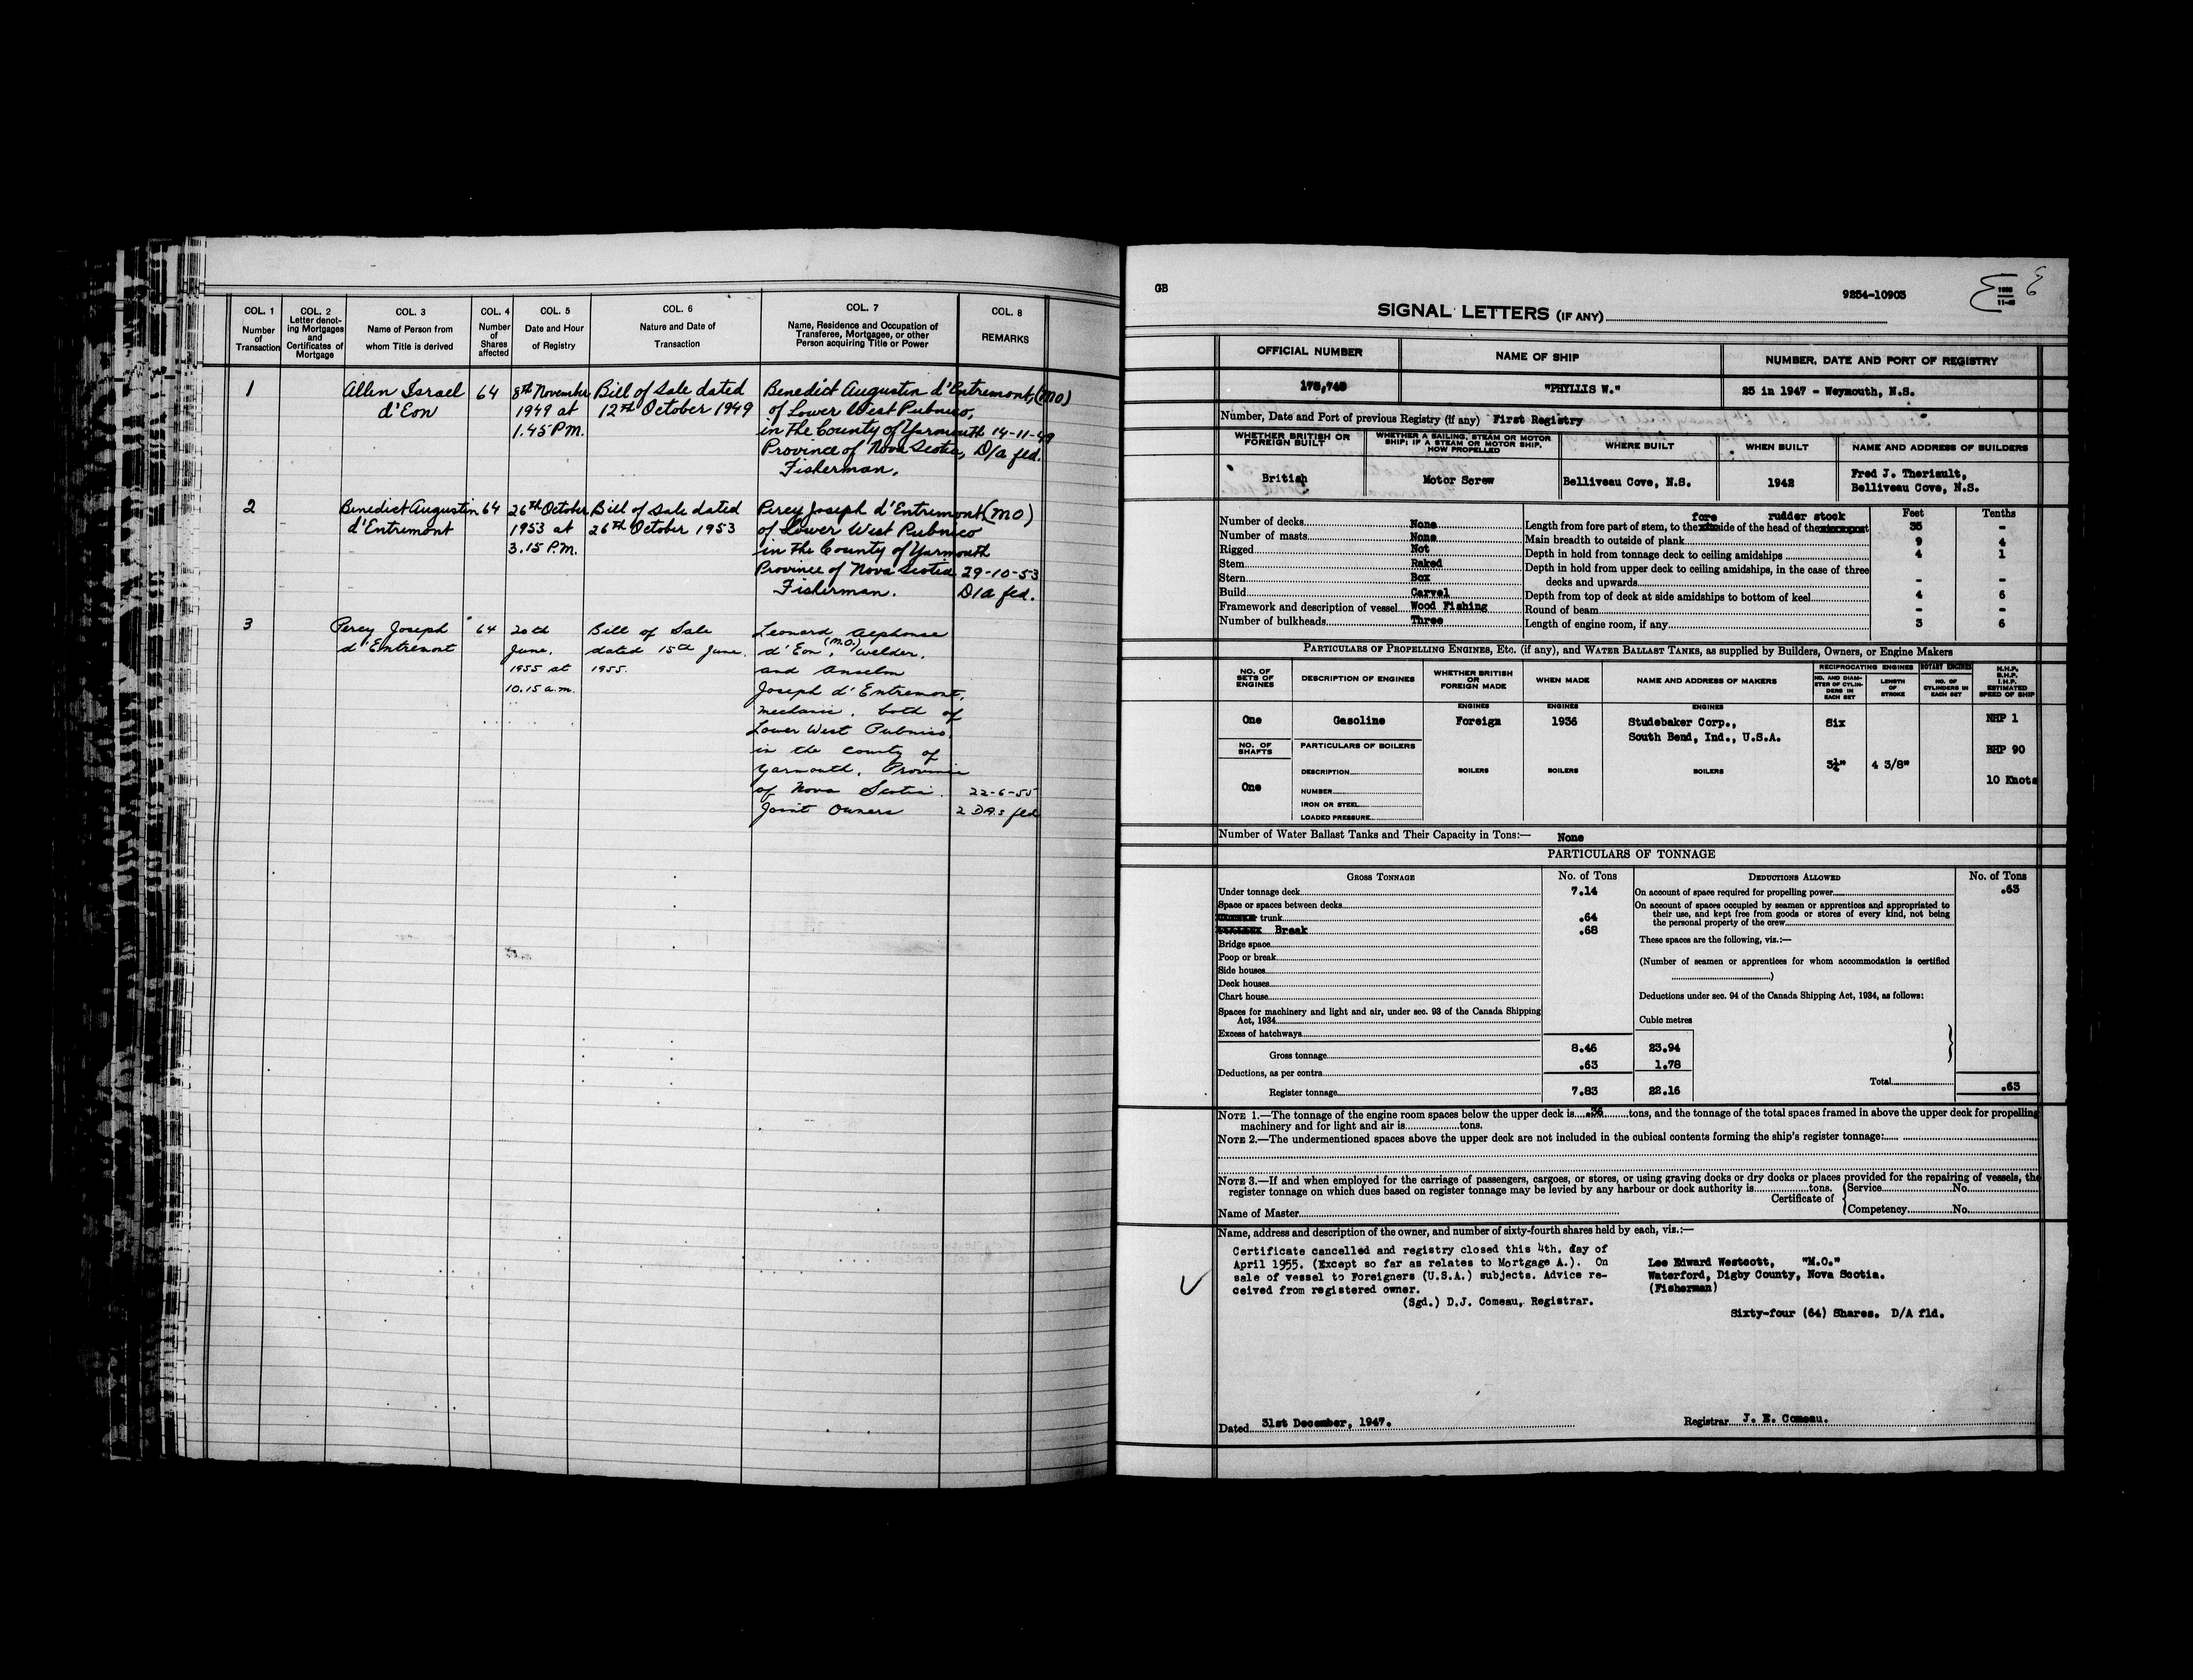 COL. 1
Number
of
Transaction
COL. 2
Letter denot-
ing Mortgages
and
Certificates of
Mortgage
COL. 3
Name of Person from
whom Title is derived
COL. 4
Number
of
Shares
affected
COL. 5
Date and Hour
of Registry
COL. 6
Nature and Date of
Transaction
COL. 7
Name, Residence and Occupation of
Transferee, Mortgagee, or other
Person acquiring Title or Power
COL. 8
REMARKS
1 Allen Israel 64 8th November Bill of Sale dated Benedict Augustin d'Entremont, (MO)
d'Eon 1949 at 12th October 1949 of Lower West Pubnico,
1.45 P.M. in the County of Yarmouth 14-11-49
Province of Nova Scotia, D/a fld.
Fisherman.
2 Benedict Augustin 64 26th October Bill of Sale dated Percy Joseph d'Entremont (MO)
d'Entremont 1953 at 26th October 1953 of Lower West Pubnico
3.15 P.M. in the County of Yarmouth
Province of Nova Scotia 29-10-53
Fisherman. D/a fld.
3 Percy Joseph 64 20th Bill of Sale Leonard Alphonse
d'Entremont June, dated 15th June, d'Eon, (M.O.) welder,
1955 at 1955. and Anselm
10.15 a.m. Joseph d'Entremont,
mechanic, both of
Lower West Pubnico,
in the County of
Yarmouth, Province
of Nova Scotia. 22-6-55
Joint Owners 2 D.A.s fld
GB
9254-10903
SIGNAL LETTERS (IF ANY)
OFFICIAL NUMBER
NAME OF SHIP
NUMBER, DATE AND PORT OF REGISTRY
"PHYLLIS W."
25 in 1947 - Weymouth, N.S.
Number, Date and Port of previous Registry (if any) First Registry
WHETHER BRITISH OR
FOREIGN BUILT
WHETHER A SAILING, STEAM OR MOTOR
SHIP; IF A STEAM OR MOTOR SHIP,
HOW PROPELLED
WHERE BUILT
WHEN BUILT
NAME AND ADDRESS OF BUILDERS
British
Motor Screw
Belliveau Cove, N.S.
1942
Fred J. Theriault,
Belliveau Cove, N.S.
Feet Tenths
Number of decks None
Number of masts None
Rigged Not
Stem Raked
Stern Box
Build Carvel
Framework and description of vessel Wood Fishing
Number of bulkheads Three
fore rudder stock
Length from fore part of stem, to the side of the head of the 35 -
Main breadth to outside of plank 9 4
Depth in hold from tonnage deck to ceiling amidships 4 1
Depth in hold from upper deck to ceiling amidships, in the case of three
decks and upwards - -
Depth from top of deck at side amidships to bottom of keel 4 6
Round of beam - -
Length of engine room, if any 3 6
PARTICULARS OF PROPELLING ENGINES, ETC. (if any), and WATER BALLAST TANKS, as supplied by Builders, Owners, or Engine Makers
NO. OF
SETS OF
ENGINES
DESCRIPTION OF ENGINES
WHETHER BRITISH
OR
FOREIGN MADE
WHEN MADE
NAME AND ADDRESS OF MAKERS
RECIPROCATING ENGINES
NO. AND DIAM-
ETER OF CYLIN-
DERS IN
EACH SET
LENGTH
OF
STROKE
ROTARY ENGINES
NO. OF
CYLINDERS IN
EACH SET
N.H.P.
B.H.P.
I.H.P.
ESTIMATED
SPEED OF SHIP
ENGINES ENGINES ENGINES
One Gasoline Foreign 1936 Studebaker Corp., Six NHP 1
South Bend, Ind., U.S.A.
NO. OF
SHAFTS
PARTICULARS OF BOILERS
BHP 90
DESCRIPTION BOILERS BOILERS BOILERS 3¼" 4 3/8"
10 Knots
One
NUMBER
IRON OR STEEL
LOADED PRESSURE
Number of Water Ballast Tanks and Their Capacity in Tons:— None
PARTICULARS OF TONNAGE
GROSS TONNAGE No. of Tons
Under tonnage deck 7.14
Space or spaces between decks
trunk .64
Break .68
Bridge space
Poop or break
Side houses
Deck houses
Chart house
Spaces for machinery and light and air, under sec. 93 of the Canada Shipping
Act, 1934
Excess of hatchways
Gross tonnage 8.46 23.94
Deductions, as per contra .63 1.78
Register tonnage 7.83 22.16
DEDUCTIONS ALLOWED No. of Tons
On account of space required for propelling power .63
On account of spaces occupied by seamen or apprentices and appropriated to
their use, and kept free from goods or stores of every kind, not being
the personal property of the crew
These spaces are the following, viz.:—
(Number of seamen or apprentices for whom accommodation is certified
)
Deductions under sec. 94 of the Canada Shipping Act, 1934, as follows:
Cubic metres
Total .63
NOTE 1.—The tonnage of the engine room spaces below the upper deck is .36 tons, and the tonnage of the total spaces framed in above the upper deck for propelling
machinery and for light and air is tons.
NOTE 2.—The undermentioned spaces above the upper deck are not included in the cubical contents forming the ship's register tonnage:
NOTE 3.—If and when employed for the carriage of passengers, cargoes, or stores, or using graving docks or dry docks or places provided for the repairing of vessels, the
register tonnage on which dues based on register tonnage may be levied by any harbour or dock authority is tons.
Certificate of
Service No.
Competency No.
Name of Master
Name, address and description of the owner, and number of sixty-fourth shares held by each, viz.:—
Certificate cancelled and registry closed this 4th. day of
April 1955. (Except so far as relates to Mortgage A.). On
sale of vessel to Foreigners (U.S.A.) subjects. Advice re-
ceived from registered owner.
(Sgd.) D.J. Comeau, Registrar.
Lee Edward Westcott, "M.O."
Waterford, Digby County, Nova Scotia.
(Fisherman)
Sixty-four (64) Shares. D/A fld.
Dated 31st December, 1947.
Registrar J. E. Comeau.